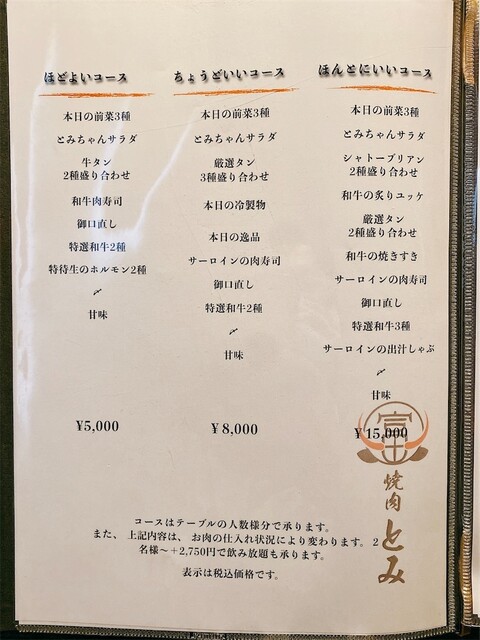 ほどよいコース
本日の前菜3種
とみちゃんサラダ
牛タン
2種盛り合わせ
和牛肉寿司
御口直し
特選和牛2種
特待生のホルモン2種
〆
甘味
¥5,000
ちょうどいいコース
本日の前菜3種
とみちゃんサラダ
厳選タン
3種盛り合わせ
本日の冷製物
本日の逸品
サーロインの肉寿司
御口直し
特選和牛2種
〆
甘味
¥8,000
ほんとにいいコース
本日の前菜3種
とみちゃんサラダ
シャトーブリアン
2種盛り合わせ
和牛の炙りユッケ
厳選タン
2種盛り合わせ
和牛の焼きすき
サーロインの肉寿司
御口直し
特選和牛3種
サーロインの出汁しゃぶ
〆
甘味
¥15,000
富
焼肉とみ
コースはテーブルの人数様分で承ります。
また、上記内容は、お肉の仕入れ状況により変わります。2
名様〜+2,750円で飲み放題も承ります。
表示は税込価格です。